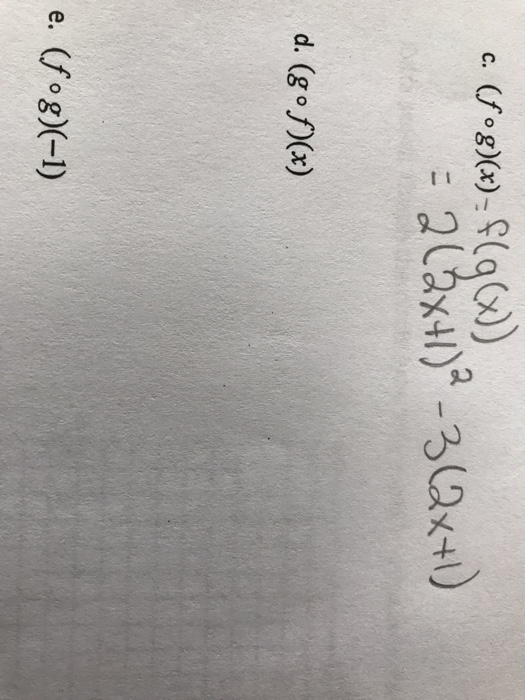 c. (f∘g)(x) = f(g(x))
= 2(2x+1)² - 3(2x+1)
d. (g∘f)(x)
e. (f∘g)(-1)